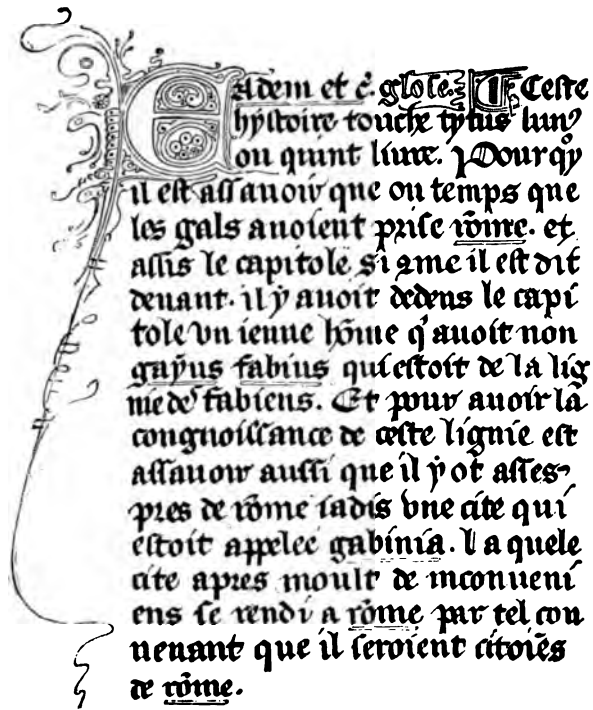 Eadem et c̃. glose. Ceste
hystoire touche tytus liui9
ou quint liure. Pour qͦy
il est assauoir que ou temps que
les gals auoient prise rõme. et
assis le capitole si 9me il est dit
deuant. il ẏ auoit dedens le capi
tole vn ieune hõme q̓ auoit non
gaẏus fabius qui estoit de la lig
nie des fabiens. Et pour auoir la
congnoissance de ceste lignie est
assauoir aussi que il ẏ ot asses
pres de rõme iadis vne cite qui
estoit appelee gabinia. La quele
cite apres moult de inconueni
ens se rendi a rõme par tel con
uenant que il seroient citoiẽs
de rõme.